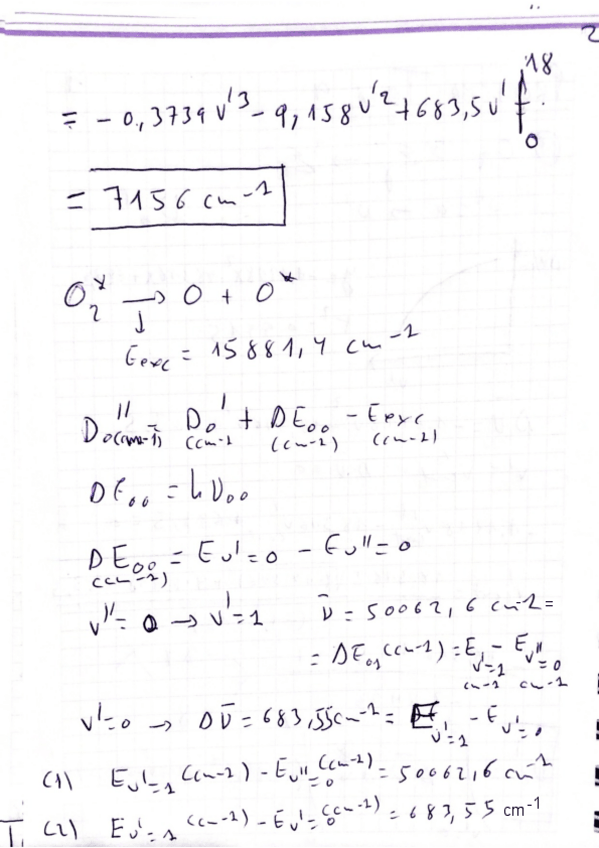 2
= - 0,3739 v'3 - 9,158 v'2 + 683,5 v' | 18 0
= 7156 cm-1
O2* → O + O*
↓
Eexc = 15881,4 cm-1
Do''(cm-1) = Do'(cm-1) + DE00(cm-1) - Eexc(cm-1)
DE00 = h ν00
DE00(cm-1) = Ev'=0 - Ev''=0
v''=0 → v'=1 ν̄ = 50062,6 cm-1 =
= ΔE01(cm-1) = Ev'=1 cm-1 - Ev''=0 cm-1
v'=0 → Δν̄ = 683,55 cm-1 = Ev'=1 - Ev'=0
(1) Ev'=1(cm-1) - Ev''=0(cm-1) = 50062,6 cm-1
(2) Ev'=1(cm-1) - Ev'=0(cm-1) = 683,55 cm-1